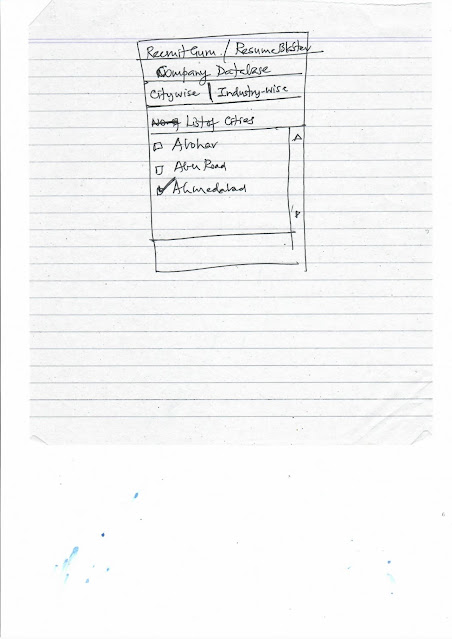 RecruitGuru / ResumeBlaster
Company Database
Citywise | Industry-wise
List of Cities
Abohar
Abu Road
Ahmedabad